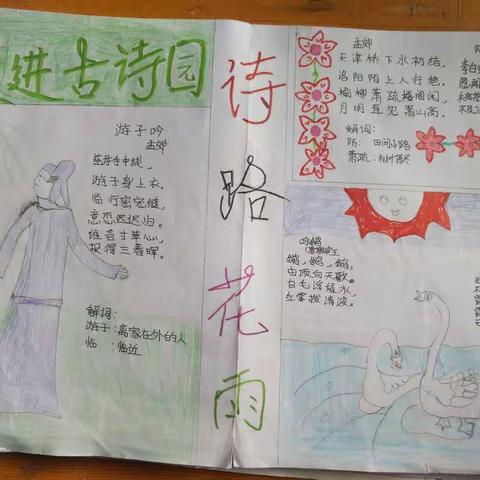 进古诗园
游子吟
孟郊
慈母手中线，
游子身上衣。
临行密密缝，
意恐迟迟归。
谁言寸草心，
报得三春晖。
解词：
游子：离家在外的人
临：临近
诗路花雨
孟郊
天津桥下水初结，
洛阳陌上人行绝。
榆柳萧疏楼阁闲，
月明直见嵩山高。
解词：
陌：田间小路
萧疏：树叶落尽
李白
咏鹅
唐 骆宾王
鹅，鹅，鹅，
曲项向天歌。
白毛浮绿水，
红掌拨清波。